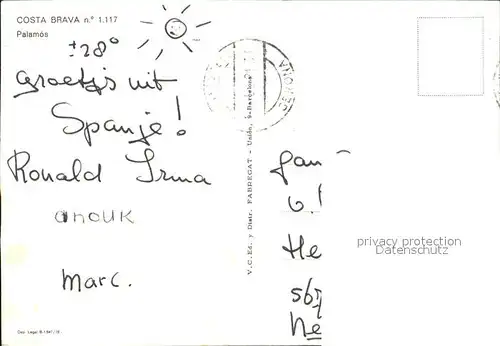 COSTA BRAVA n.º 1.117
Palamós
± 28°
Groetjs uit
Spanje!
Ronald Irma
anouk
marc.
V. C. Ed. y Distr. FABREGAT - Unión, 9-Barcelona
Fam
He
privacy protection
Datenschutz